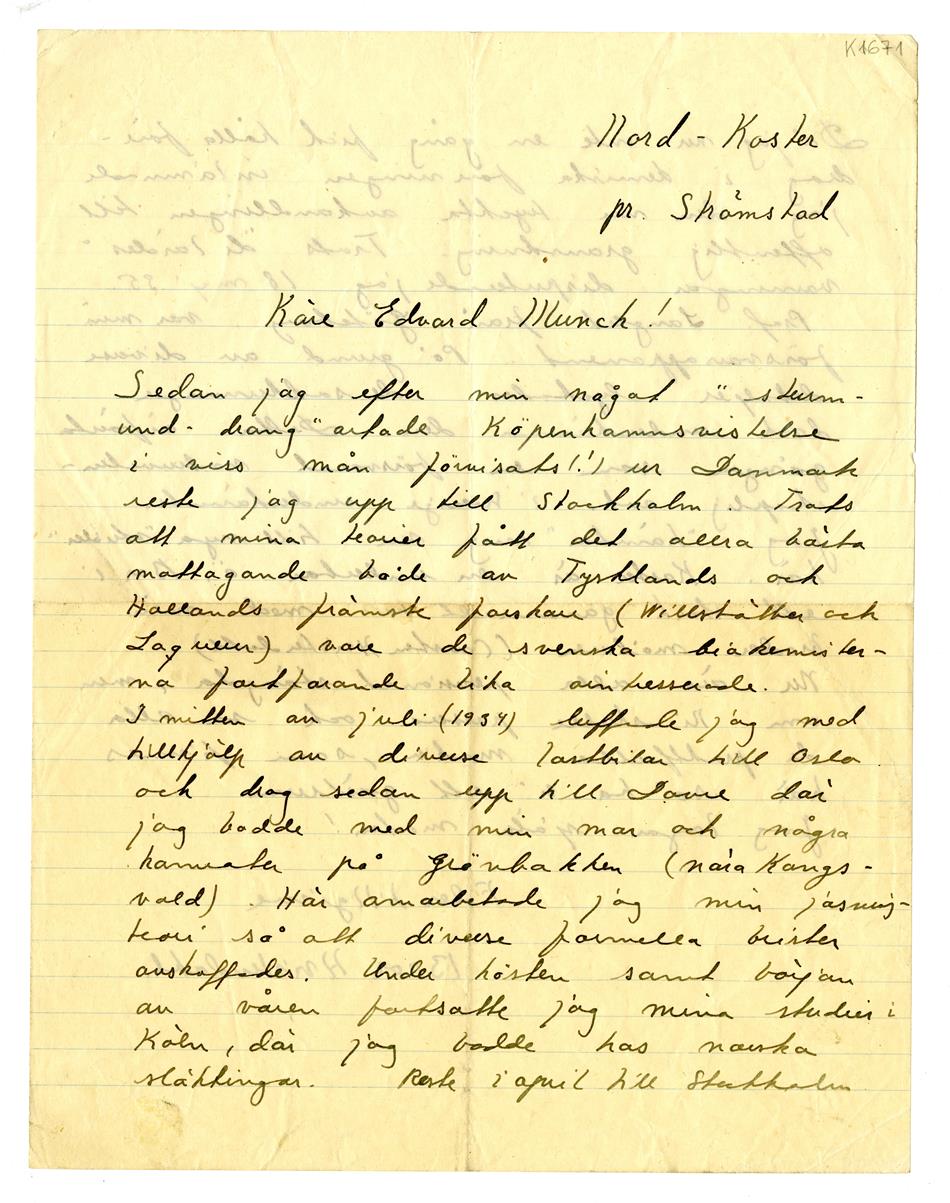 K1671
Nord-Koster
pr. Strömstad
Käre Edvard Munch!
Sedan jag efter min något "sturm-
und-drang" artade Köpenhamnsvistelse
i viss mån förvisats(!) ur Danmark
reste jag upp till Stockholm. Trots
att mina teorier fått det allra bästa
mottagande både av Tysklands och
Hollands främste forskare (Willstätter och
Laqueur) voro de svenska biokemister-
na fortfarande lika ointresserade.
I mitten av juli (1934) luffade jag med
tillhjälp av diverse lastbilar till Oslo
och drog sedan upp till Dovre där
jag bodde med min mor och några
kamrater på Grönbakken (nära Kongs-
vold). Här omarbetade jag min jäsning-
teori så att diverse formella brister
avskaffades. Under hösten samt början
av våren fortsatte jag mina studier i
Köln, där jag bodde hos norska
släktingar. Reste i april till Stockholm